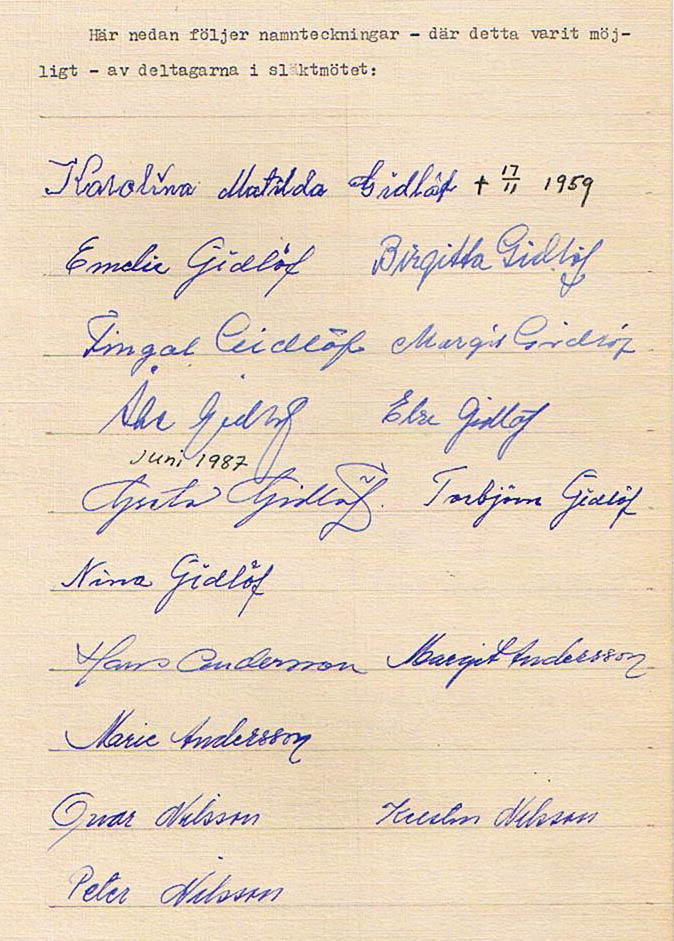 Här nedan följer namnteckningar - där detta varit möj-
ligt - av deltagarna i släktmötet:
Karolina Matilda Gidlöf + 17/11 1959
Emelie Gidlöf Birgitta Gidlöf
Fingal Gidlöf Margit Gidlöf
Åke Gidlöf Else Gidlöf
Juni 1987
Greta Gidlöf. Torbjörn Gidlöf
Nina Gidlöf
Hans Andersson Margit Andersson
Marie Andersson
Ovar Nilsson Kerstin Nilsson
Peter Nilsson